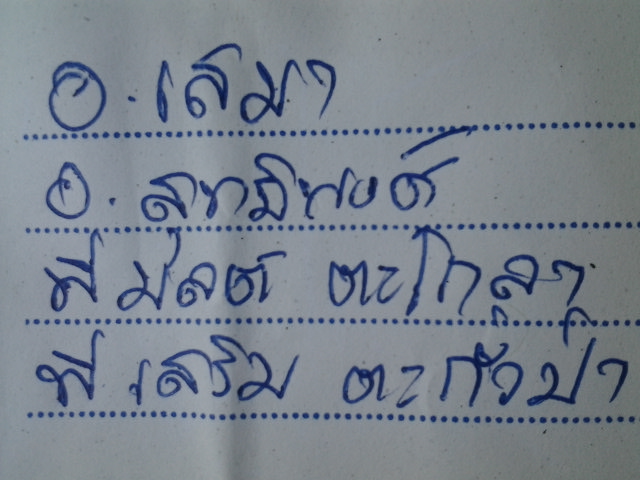 อ. เสมา
อ. สุทธิพงษ์
พี่ มลต ตะโกลา
พี่ เสริม ตะกั่วป่า